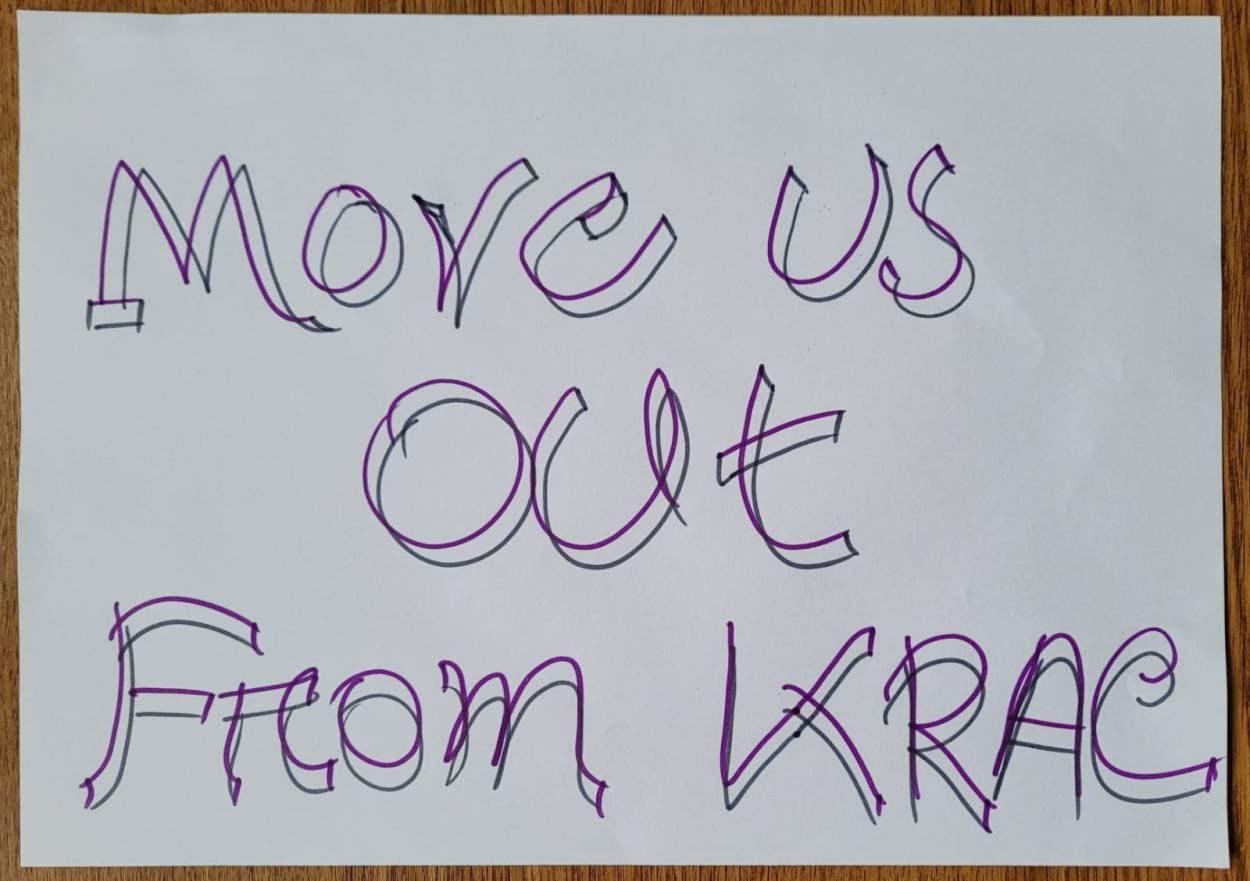 Move us
out
From KRAC